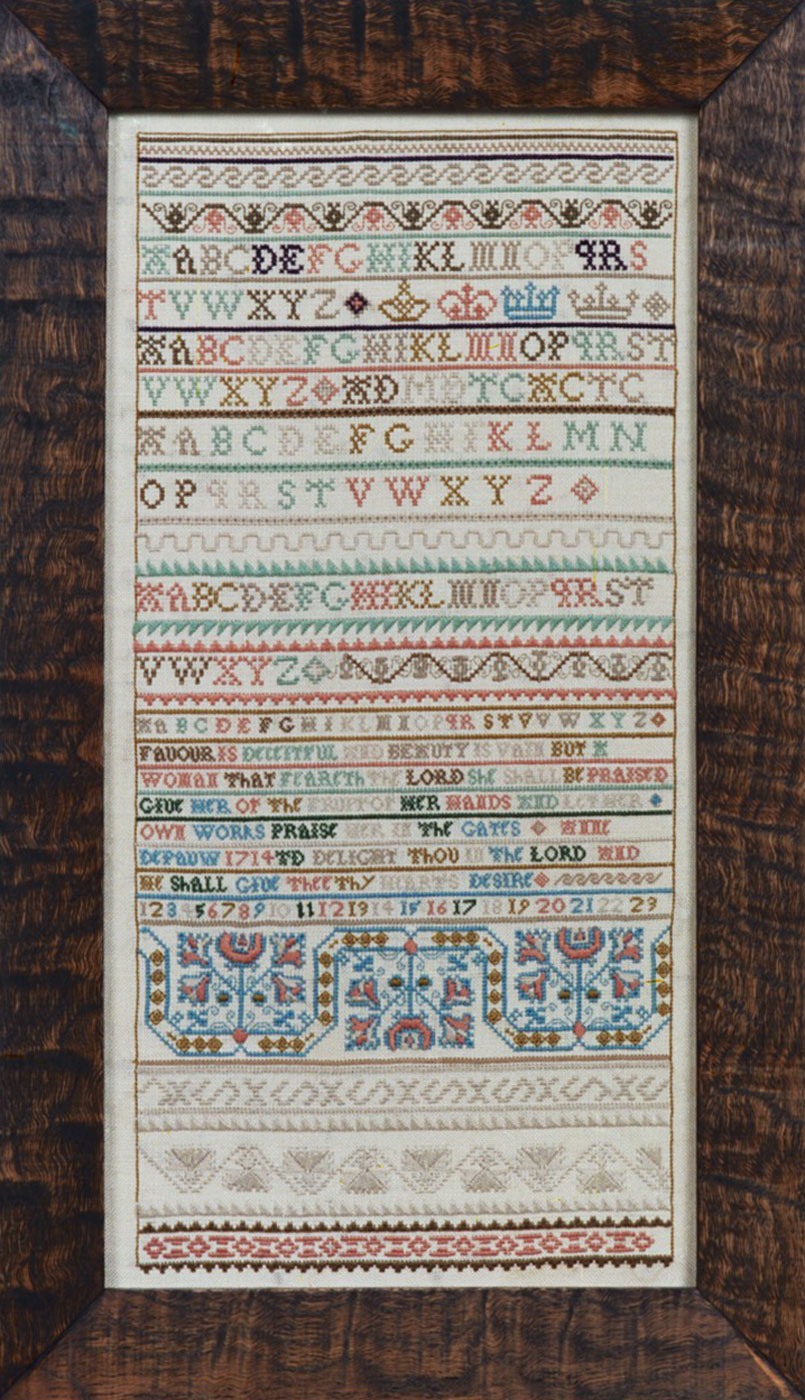 AABCDEFGHIKLMNOPQRS
TVWXYZ
AABCDEFGHIKLMNOPQRST
VWXYZ AD MD TC AC TC
AABCDEFGHIKLMN
OPQRSTVWXYZ
AABCDEFGHIKLMNOPQRST
VWXYZ
AABCDEFGHIKLMNOPQRSTVVWXYZ
FAVOUR IS DECEITFUL AND BEAUTY IS VAIN BUT A
WOMAN THAT FEARETH THE LORD SHE SHALL BE PRAISED
GIVE HER OF THE FRUIT OF HER HANDS AND LET HER
OWN WORKS PRAISE HER IN THE GATES ANNE
DEPAUW 1714 TD DELIGHT THOU IN THE LORD AND
HE SHALL GIVE THEE THY HEARTS DESIRE
1 2 3 4 5 6 7 8 9 10 11 12 13 14 15 16 17 18 19 20 21 22 23